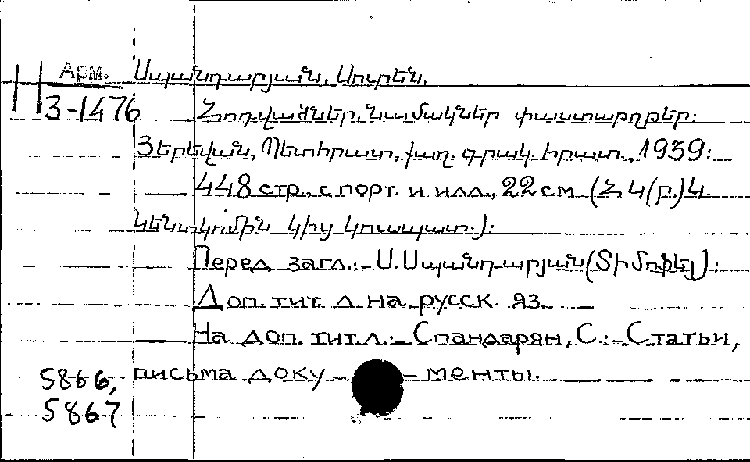 Арм. Սպանդարյան, Սուրեն.
Н
3-1476 Հոդվածներ, նամակներ փաստաթղթեր:
Յերեվան, Պետհրատ, քաղ. գրակ. հրատ., 1939:
448 стр., с порт. и илл., 22 см (ՀԿ(բ)Կ
Կենտկոմին կից կուսպատ.):
Перед загл.: Ս. Սպանդարյան (Տիմոֆեյ):
Доп. тит. л. на русск. яз.
На доп. тит. л.: Спандарян, С.: Статьи,
письма доку-менты.
5866,
5867